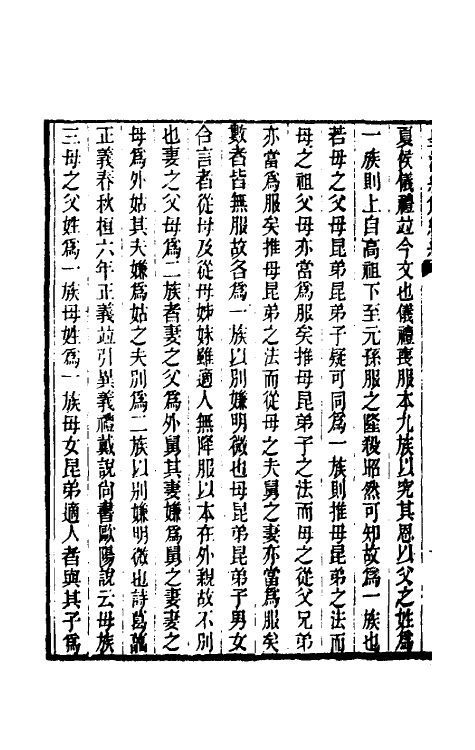 夏侯儀禮竝今文也儀禮喪服本九族以究其恩以父之姓爲
一族則上自高祖下至元孫服之隆殺昭然可知故爲一族也
若母之父母昆弟昆弟子疑可同爲一族則推母昆弟之法而
母之祖父母亦當爲服矣推母昆弟子之法而母之從父兄弟
亦當爲服矣推母昆弟之法而從母之夫舅之妻亦當爲服矣
數者皆無服故各爲一族以別嫌明微也母昆弟子男女
合言者從母及從母姊妹雖適人無降服以本在外親故不別
也妻之父母爲二族者妻之父爲外舅其妻嫌爲舅之妻妻之
母爲外姑其夫嫌爲姑之夫別爲二族以別嫌明微也詩葛藟
正義春秋桓六年正義竝引異義禮戴說尚書歐陽說云母族
三母之父姓爲一族母姓爲一族母女昆弟適人者與其子爲